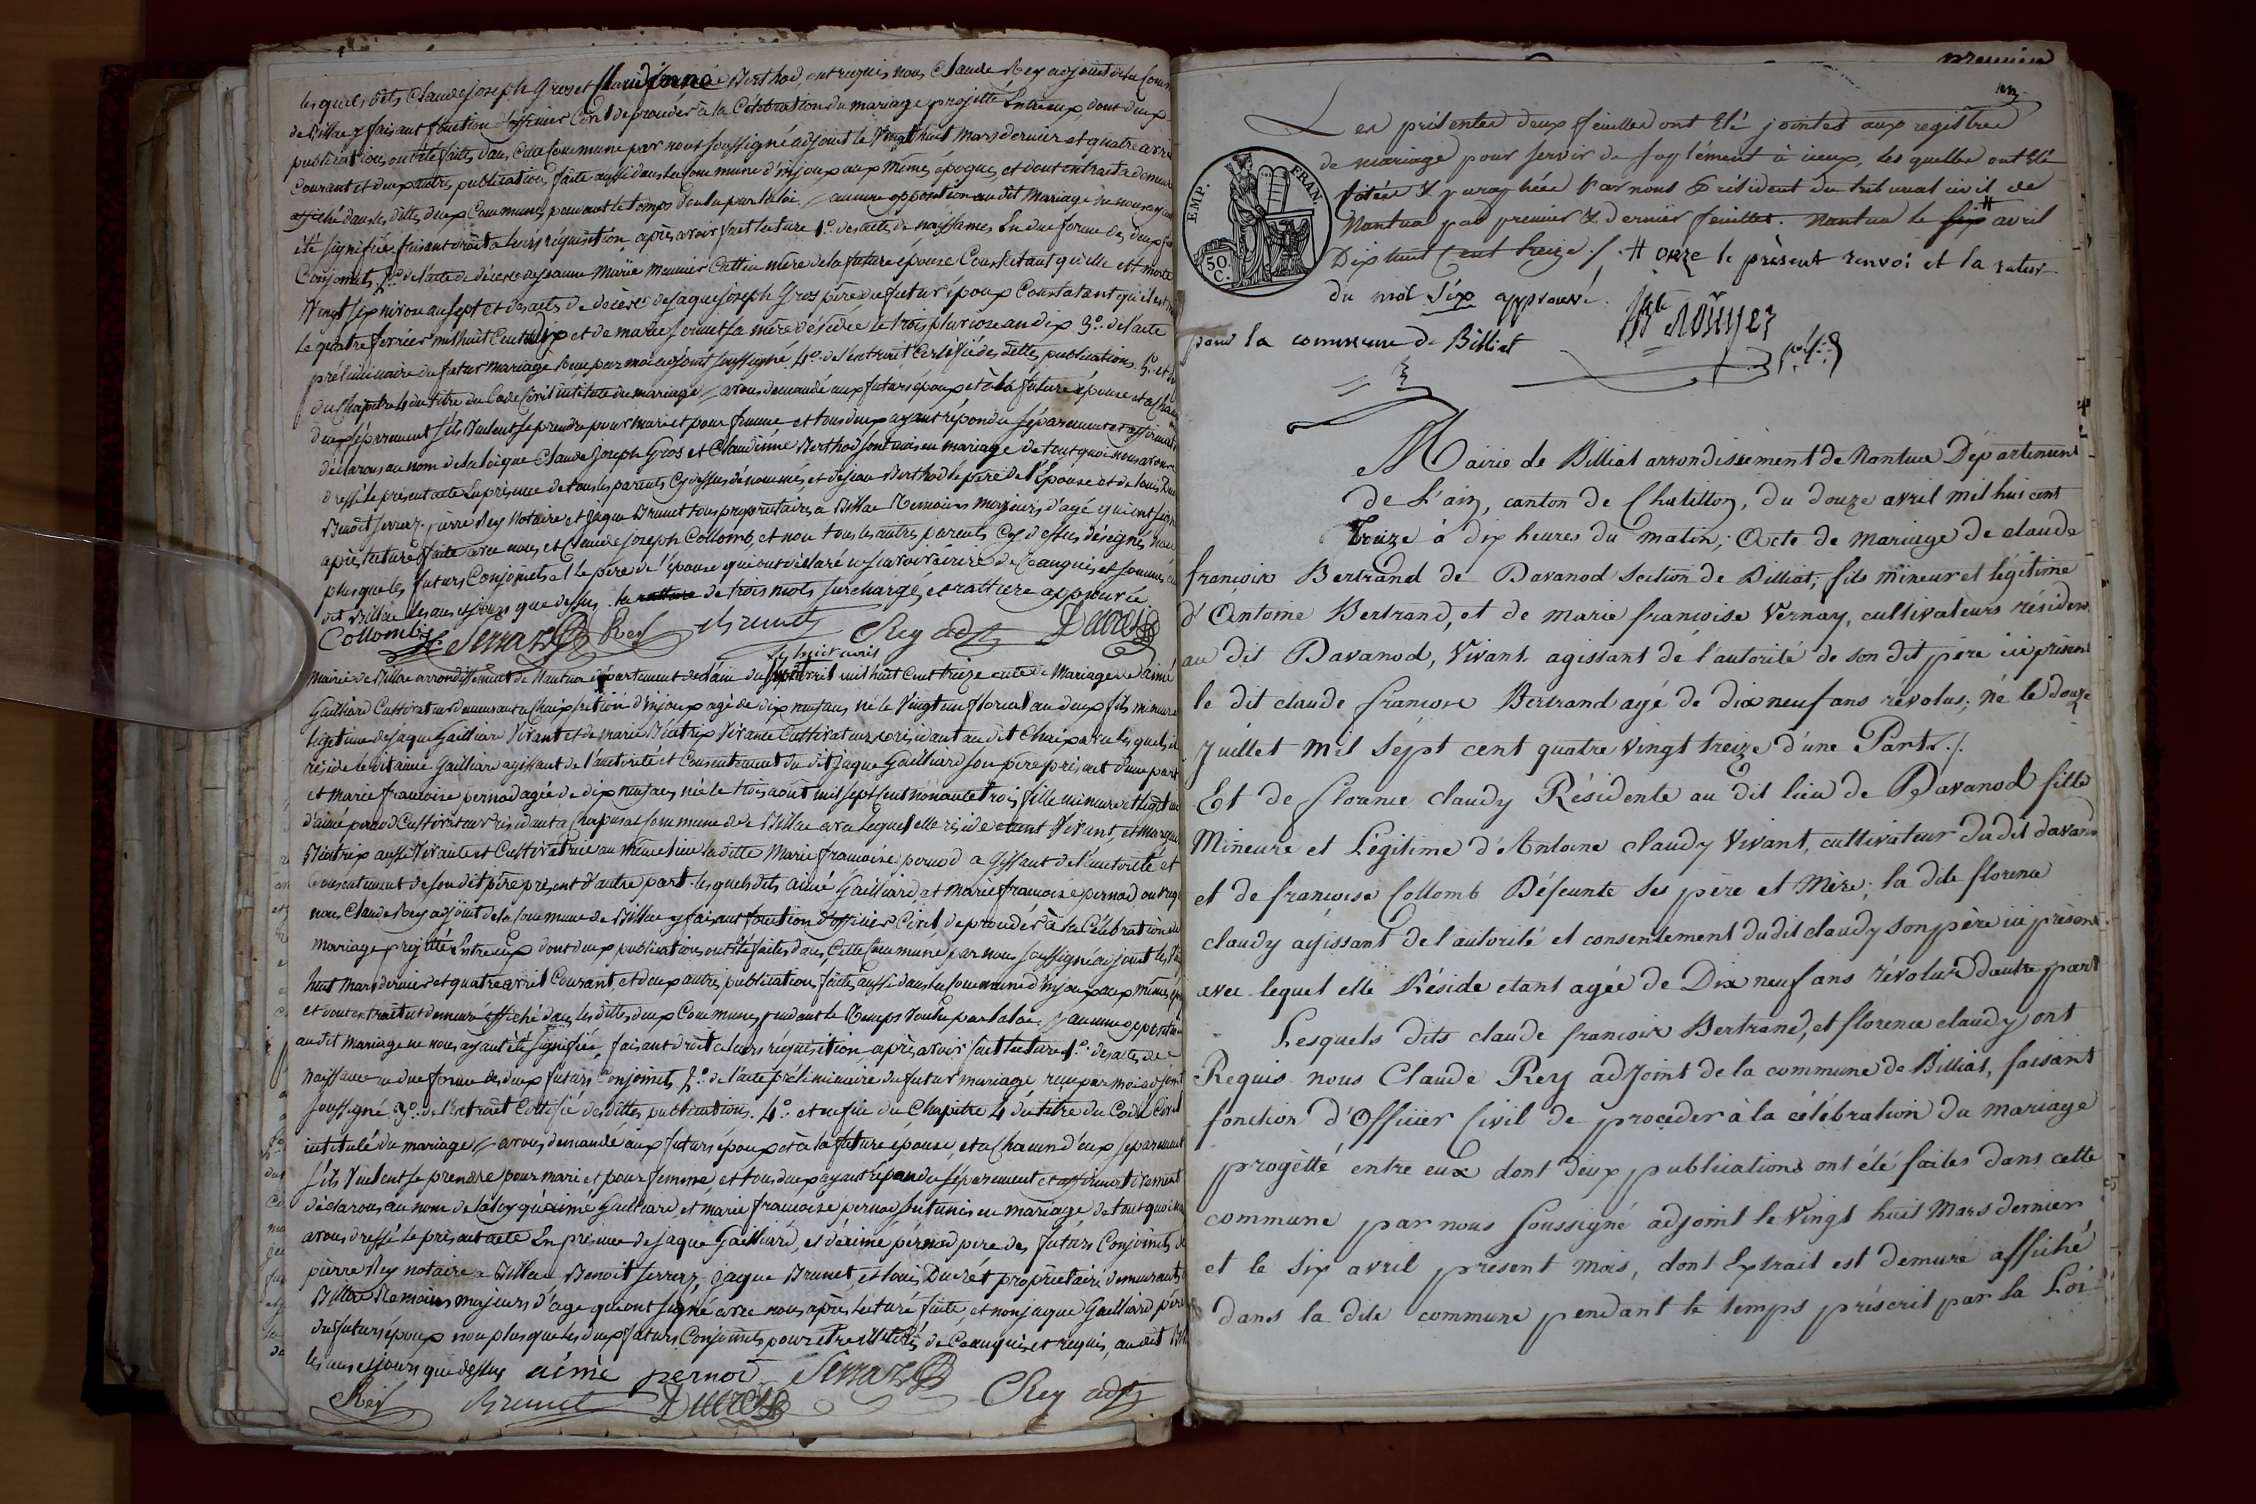 lesquels dits Claude joseph Gros et Claudinne Berthod, ont requis nous Claude Rey adjoint de la Com
de Billiat faisant fonction d'officier Civil de procéder à la Célébration du mariage projetté Entre eux, dont deux
publications ont été faites dans Cette Commune par nous soussigné adjoint le Vingt huit Mars dernier et quatre avril
Courant et deux autres publications faite aussi dans la Commune d'injoux aux mêmes époques, et dont extrait a demeuré
affiché dans les dittes deux Communes pendant le temps Voulu par la loi, aucune opposition au dit Mariage ne nous ayant
été signifiée, faisant droit à leurs réquisition, après avoir fait lecture 1.º des actes de naissances En due forme des deux
Conjoints, 2.º de l'acte de décès de jeanne Marie Meunier Cattin mère de la future épouse Constatant qu'elle est morte
Vingt six nivose an sept et des actes de décès de jaque joseph Gros père du futur époux Constatant qu'il est
le quatre ferrier mil huit Cent dix et de marie sa mère décédée le trois pluviose an dix 3.º de l'acte
préliminaire du futur mariage Reçu par moi adjoint soussigné, 4.º de l'extrait Certifié des dittes publications. 5.º et
du Chapitre 4 du titre du Code Civil intitulé du mariage, avons demandé aux futurs époux et à la future épouse et a Chacun
deux séparement s'ils Veulent se prendre pour mari et pour femme et tous deux ayant répondu séparement et affirmati
déclarons au nom de la loi que Claude joseph Gros et Claudinne Berthod sont unis en mariage de tout quoi nous avons
dressé le présent acte En présence de tous les parents Cy dessus dénommés, et de jean Berthod le père de l'épouse et de louis Ducret
Benoit serraz, pierre Rey Notaire et jaque Brunet tous proprietaires à Billiat Témoins majeurs d'age qui ont signé
après lecture faite avec nous, et Claude joseph Collomb, et non tous les autres parents Cy dessus désignés, non
plus que les futurs Conjoints et le père de l'épouse qui ont déclaré ne sçavoir écrire de Ce enquis et sommés
dit Billiat les ans et jours que dessus la rature de trois mots surchargé, et rature approuvée
Collomb Serraz Rey Brunet Rey adjt Ducret
le huit avril
Mairie de Billiat arrondissement de Nantua département de l'ain du avril mil huit Cent treize acte de Mariage de aimé
Gailliard Cultivateur demeurant a Chaix section d'injoux agé de dix neuf ans né le Vingt un floréal an deux fils mineur
légitime de jaque Gailliard Vivant et de Marie Béatrix Vivante Cultivateurs residant au dit Chaix avec lesquels il
réside le dit aimé Gailliard agissant de l'autorité et Consentement du dit jaque Gailliard son père présent d'une part
et Marie françoise pernod agée de dix neuf ans née le trois août mil sept Cent nonante trois fille mineure et légitime
d'aimé pernod Cultivateur residant a Commune de Billiat avec lequel elle réside etant Vivant, et Margue
Béatrix aussi Vivante et Cultivatrice au même lieu la ditte Marie françoise pernod agissant de l'autorité et
Consentement de son dit père présent d'autre part. lesquels dits aimé Gailliard, et Marie françoise pernod ont requis
nous Claude Rey adjoint de la Commune de Billiat y faisant fonction d'officier Civil de procéder à la Célébration du
mariage projetté Entre eux dont deux publications ont été faites dans Cette Commune par nous soussigné adjoint les Vingt
huit Mars dernier et quatre avril Courant, et deux autres publications faites aussi dans la Commune d'injoux aux mêmes
et dont extrait est demeuré affiché dans les dittes deux Communes, pendant le Temps Voulu par la loi, aucune opposition
au dit mariage ne nous ayant été signifiée, faisant droit a leurs réquisition après avoir fait lecture 1.º des actes de
Naissance en due forme des deux futurs Conjoints, 2.º de l'acte préliminaire du futur mariage reçu par moi adjoint
soussigné 3.º de l'extrait Certifié des dittes publications. 4.º et enfin du Chapitre 4 du titre du Code Civil
intitulé du mariage avons demandé aux futurs époux et à la future épouse, et a Chacun d'eux séparement
s'ils Veulent se prendre pour mari et pour femme, et tous deux ayant répondu séparement et affirmativement
déclarons au nom de la loy que aimé Gailliard, et marie françoise pernod sont unis en mariage de tout quoi nous
avons dressé le présent acte En présence de jaque Gailliard, et d'aimé pernod père des futurs Conjoints, de
pierre Rey notaire a Billiat Benoit serraz, jaque Brunet, et louis Ducret propriétaires demeurants
Billiat Temoins majeurs d'age qui ont signé avec nous après lecture faite, et non jaque Gailliard père
du futur époux non plus que les deux futurs Conjoints pour être illitérés de Ce enquis et requis, au dit Billiat
les ans et jours que dessus aimé pernod Serraz
Rey Brunet Ducret Rey adjt
premier
Les présentes deux feuilles ont été jointes aux registres
de mariage pour servir de suplément à iceux, les quelles ont été
cotées & paraphées par nous Président du tribunal civil de
Nantua par premier & dernier feuillet. Nantua le six # avril
Dix huit Cent treize ./. # onze le présent renvoi et la ratur
du mot Six approuvé.
EMP. FRAN.
50 C.
pour la commune de Billiat
Mairie de Billiat arrondissement de Nantua Département
de L'ain, canton de Chatillon, du douze avril mil huit cent
Treize à dix heures du matin; Acte de Mariage de claude
françois Bertrand de Davanod Section de Billiat, fils mineur et légitime
d'Antoine Bertrand, et de marie françoise Vernay, cultivateurs résidens
au dit Davanod, Vivant. agissant de l'autorité de son dit père ici présent
le dit claude françois Bertrand agé de dix neuf ans révolus; né le douze
juillet mil sept cent quatre vingt treize d'une Part ./.
Et de florence claudy Résidente au dit lieu de Davanod fille
Mineure et Légitime d'Antoine claudy Vivant, cultivateur dudit davanod
et de françoise Collomb Défeunte ses père et Mère; la dite florence
claudy agissant de l'autorité et consentement dudit claudy son père ici présent.
avec lequel elle Réside etant agée de Dix neuf ans révolus d'autre part
Lesquels dits claude françois Bertrand, et florence claudy ont
Requis nous Claude Rey adjoint de la commune de Billiat, faisant
fonction d'Officier Civil de procéder à la célébration du mariage
progetté entre eux dont deux publications ont été faites dans cette
commune par nous soussigné adjoint le Vingt huit Mars dernier,
et le six avril présent mois, dont Extrait est demuré affiché
dans la dite commune pendant le temps préscrit par la Loi